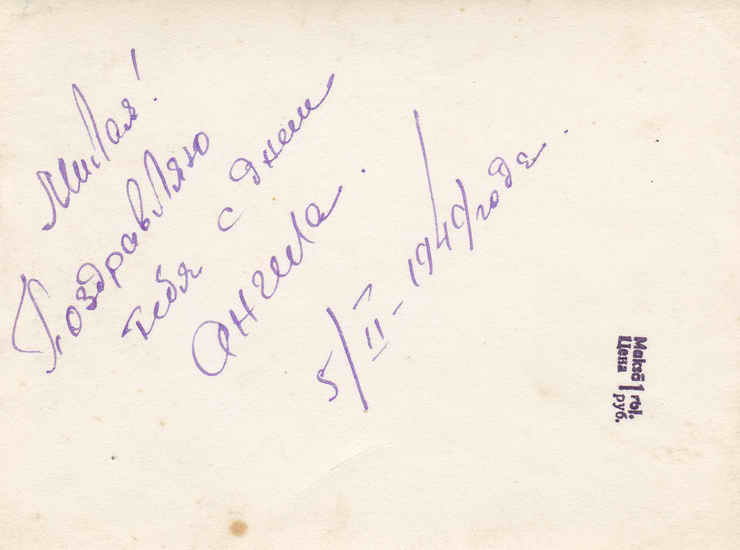 Милая!
Поздравляю
тебя с днем
Ангела.
5/II-1949 годе.
Maksā 1 rbļ.
Цена 1 руб.